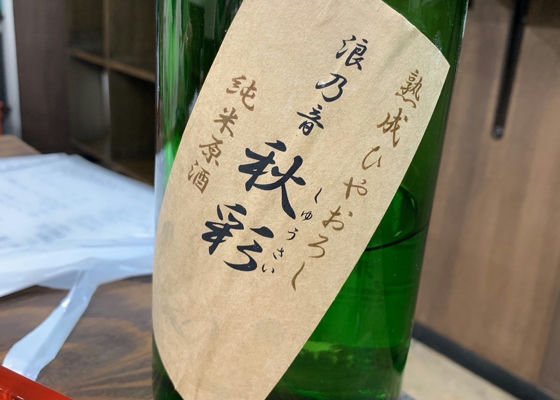 熟成ひやおろし
浪乃音
秋彩
しゅうさい
純米原酒